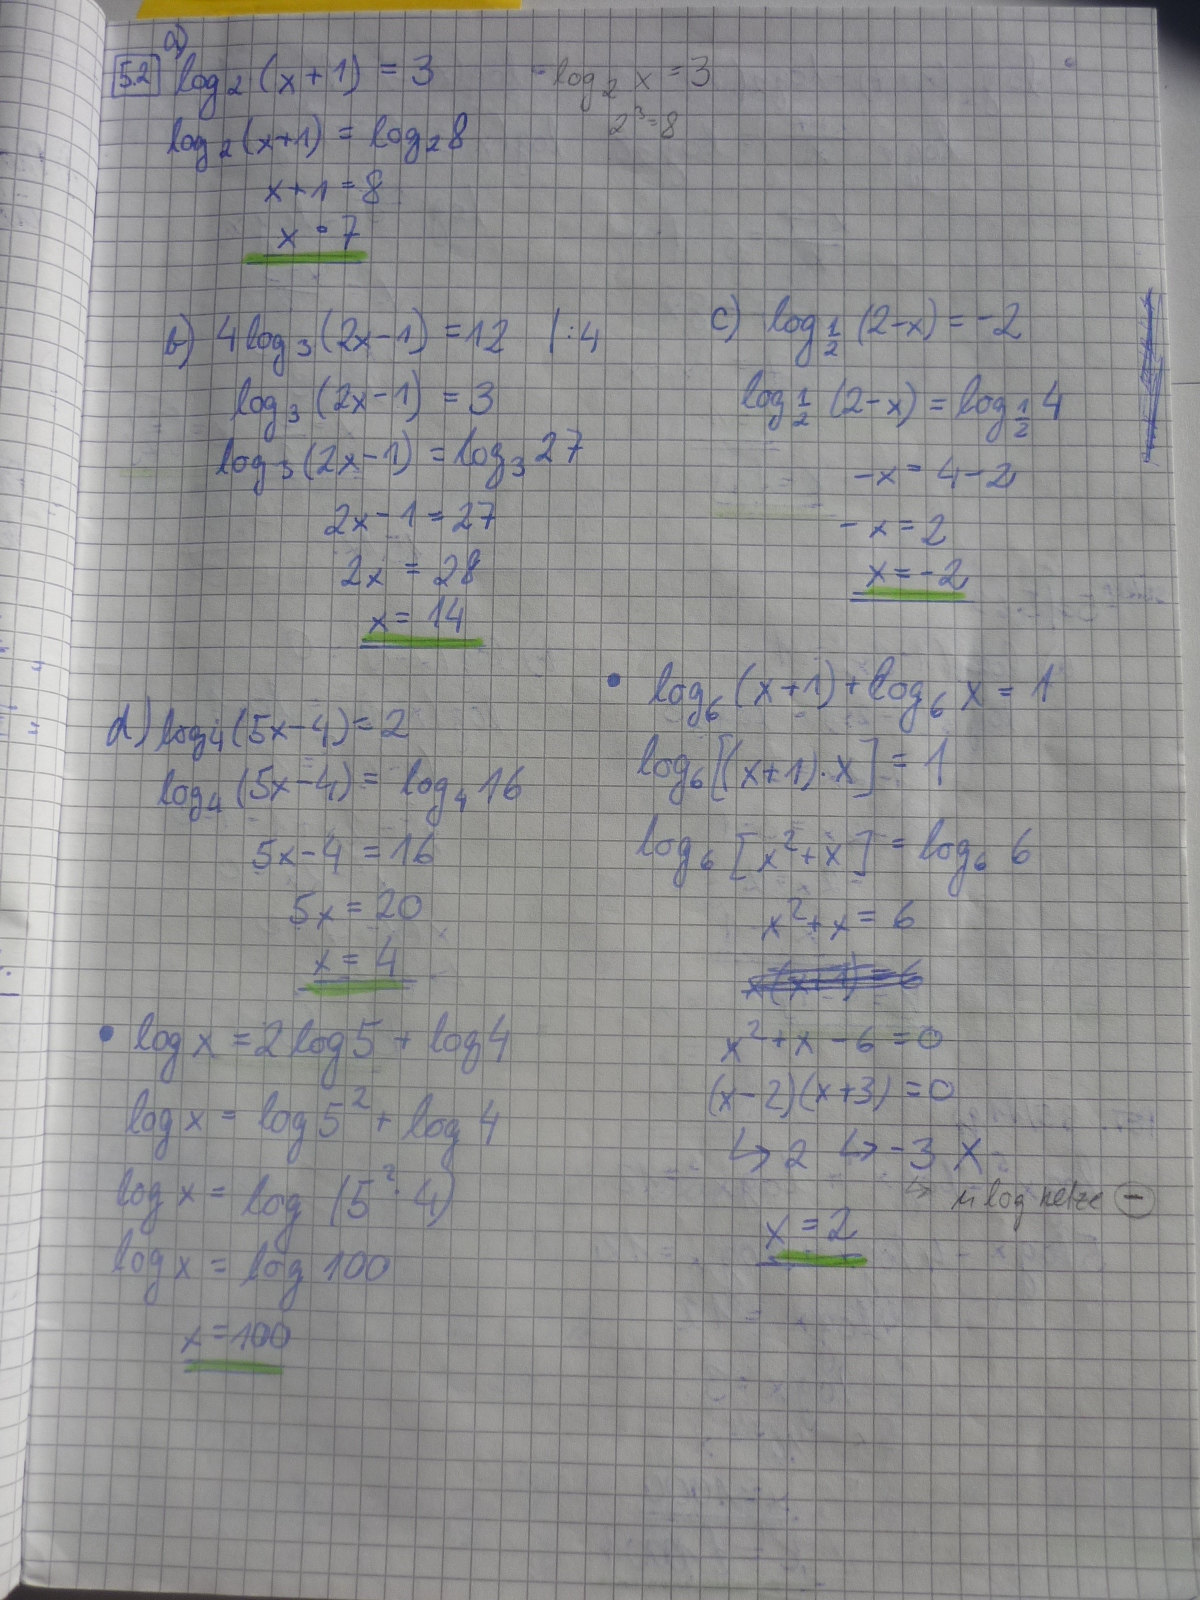 a)
52 log₂(x+1) = 3
- log₂ x = 3
2³=8
log₂(x+1) = log₂8
x+1 = 8
x = 7
b) 4log₃(2x-1) = 12 /:4
log₃(2x-1) = 3
log₃(2x-1) = log₃27
2x-1 = 27
2x = 28
x = 14
c) log½(2-x) = -2
log½(2-x) = log½4
-x = 4-2
-x = 2
x = -2
d) log₄(5x-4) = 2
log₄(5x-4) = log₄16
5x-4 = 16
5x = 20
x = 4
• log₆(x+1)+log₆x = 1
log₆[(x+1)·x] = 1
log₆[x²+x] = log₆6
x²+x = 6
x(x+1) = 6
x²+x-6 = 0
(x-2)(x+3) = 0
↳ 2 ↳ -3 X
↳ u log nelze ⊖
x = 2
• log x = 2log5 + log4
log x = log5² + log4
log x = log (5²·4)
log x = log 100
x = 100